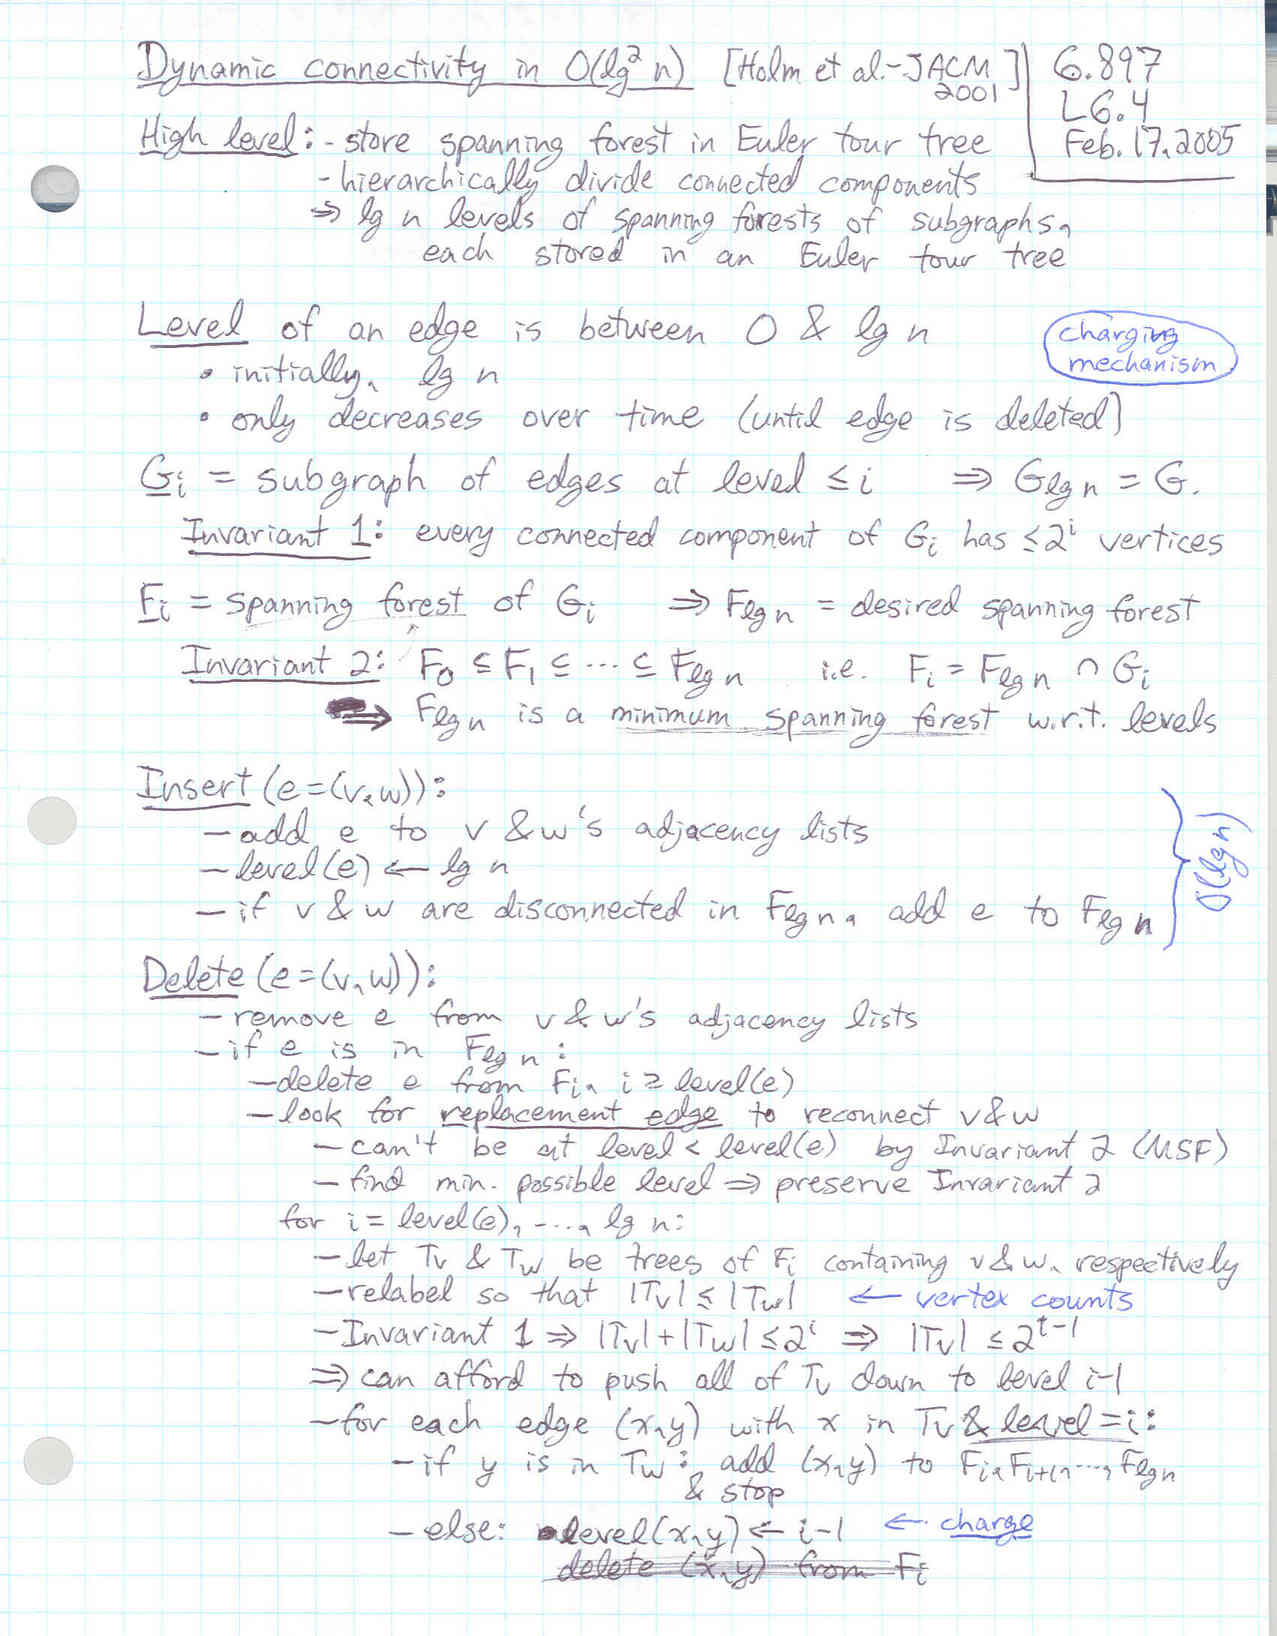 Dynamic connectivity in O(lg² n) [Holm et al. - JACM 2001]
6.897
L6.4
Feb. 17, 2005
High level: - store spanning forest in Euler tour tree
- hierarchically divide connected components
⇒ lg n levels of spanning forests of subgraphs,
each stored in an Euler tour tree
Level of an edge is between 0 & lg n
charging
mechanism
• initially, lg n
• only decreases over time (until edge is deleted)
Gᵢ = subgraph of edges at level ≤ i ⇒ G_lg n = G.
Invariant 1: every connected component of Gᵢ has ≤ 2ⁱ vertices
Fᵢ = spanning forest of Gᵢ ⇒ F_lg n = desired spanning forest
Invariant 2: F₀ ⊆ F₁ ⊆ ... ⊆ F_lg n i.e. Fᵢ = F_lg n ∩ Gᵢ
⇒ F_lg n is a minimum spanning forest w.r.t. levels
Insert(e=(v,w)):
- add e to v & w's adjacency lists
- level(e) ← lg n
- if v & w are disconnected in F_lg n, add e to F_lg n
O(lg n)
Delete(e=(v,w)):
- remove e from v & w's adjacency lists
- if e is in F_lg n:
- delete e from Fᵢ, i ≥ level(e)
- look for replacement edge to reconnect v & w
- can't be at level < level(e) by Invariant 2 (MSF)
- find min. possible level ⇒ preserve Invariant 2
for i = level(e), ..., lg n:
- let Tᵥ & T_w be trees of Fᵢ containing v & w, respectively
- relabel so that |Tᵥ| ≤ |T_w| ← vertex counts
- Invariant 1 ⇒ |Tᵥ| + |T_w| ≤ 2ⁱ ⇒ |Tᵥ| ≤ 2ⁱ⁻¹
⇒ can afford to push all of Tᵥ down to level i-1
- for each edge (x,y) with x in Tᵥ & level = i:
- if y is in T_w: add (x,y) to Fᵢ, Fᵢ₊₁, ..., F_lg n
& stop
- else: level(x,y) ← i-1 ← charge
delete (x,y) from Fᵢ